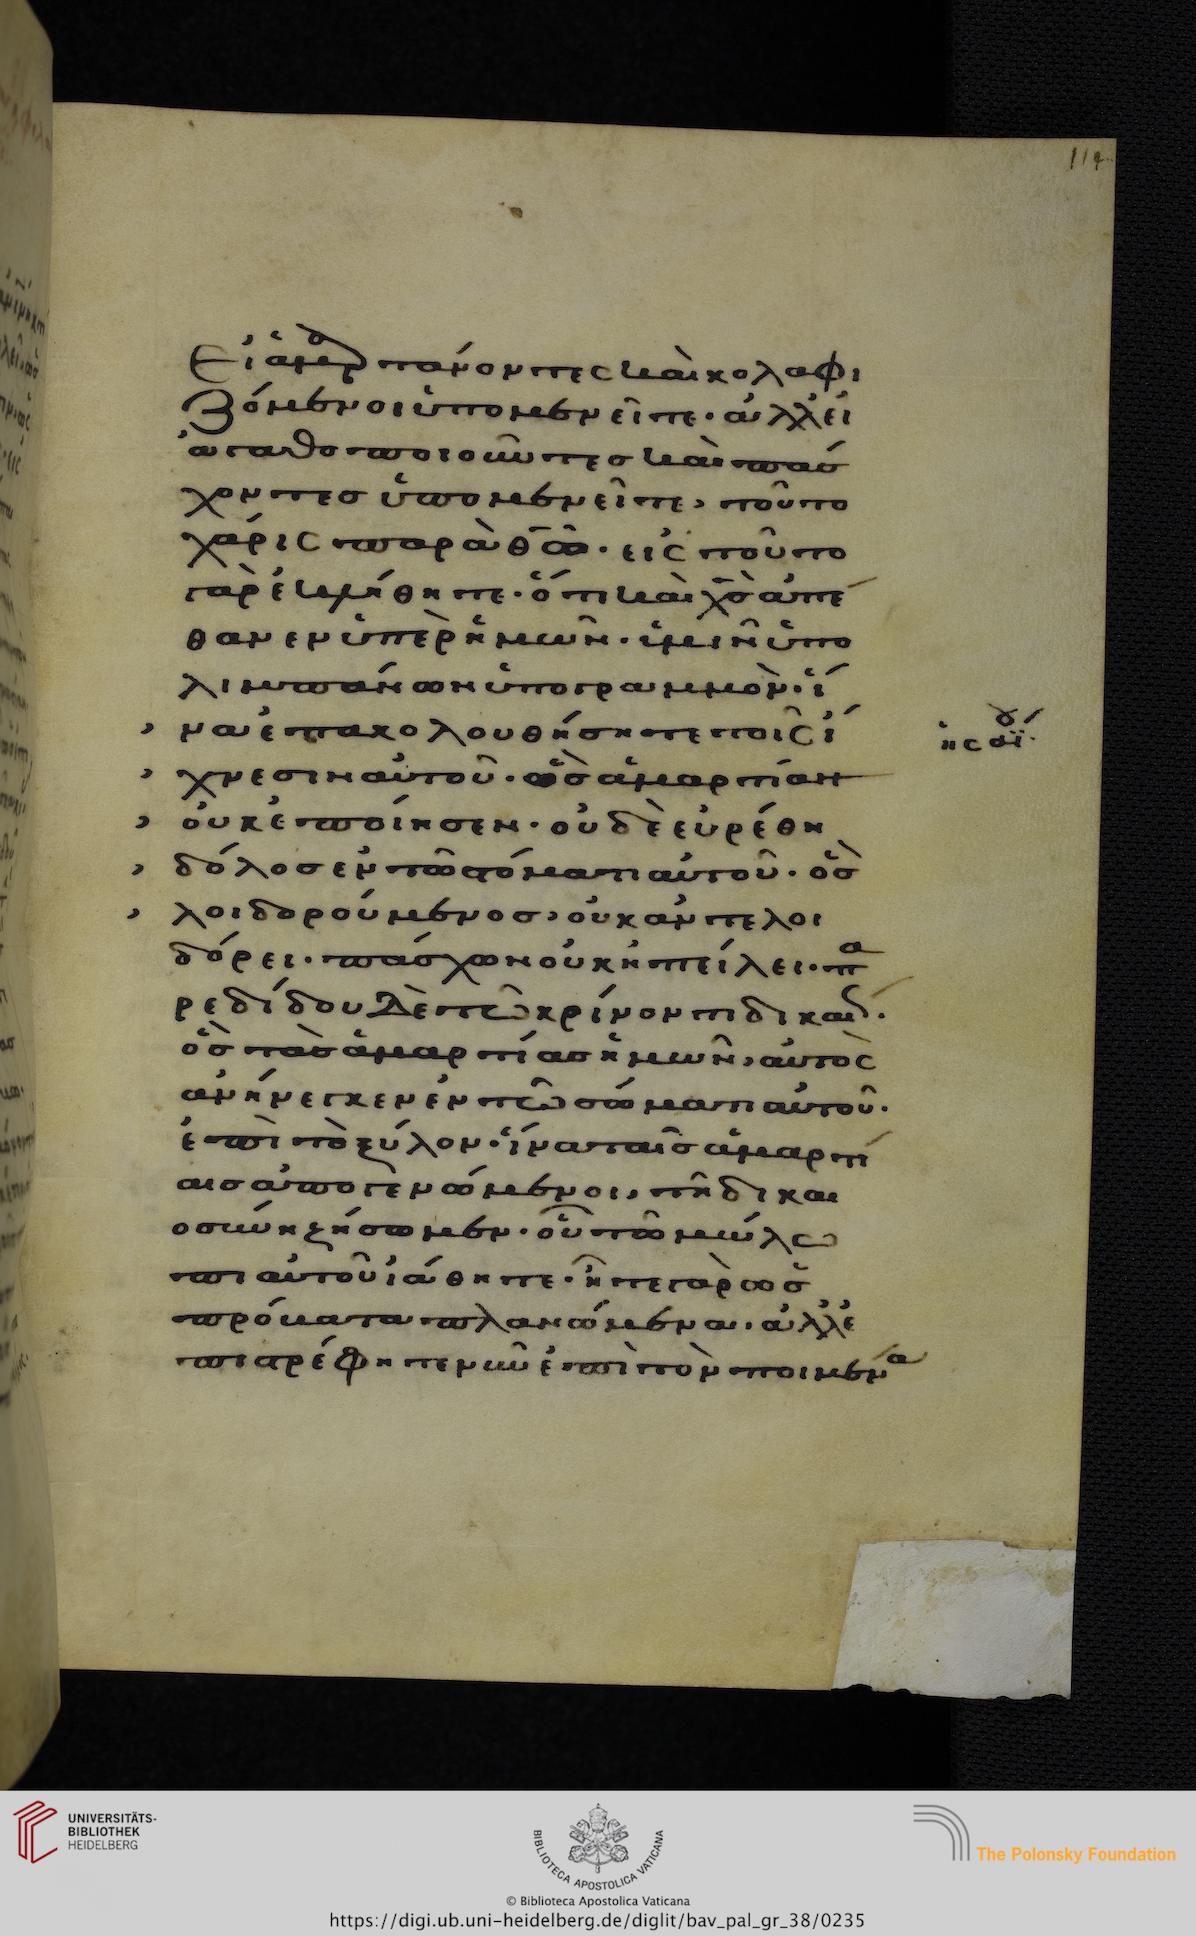 114
εἰ ἁμαρτάνοντες καὶ κολαφι
ζόμενοι ὑπομενεῖτε· ἀλλ' εἰ
ἀγαθοποιοῦντες καὶ πάσ
χοντες ὑπομενεῖτε, τοῦτο
χάρις παρὰ θῶ· εἰς τοῦτο
γὰρ ἐκλήθητε· ὅτι καὶ χς ἀπέ
θανεν ὑπὲρ ἡμῶν· ἡμῖν ὑπο
λιμπάνων ὑπογραμμὸν· ἵ
να ἐπακολουθήσητε τοῖς ἴ
χνεσιν αὐτοῦ· ὃς ἁμαρτίαν
οὐκ ἐποίησεν· οὐδὲ εὑρέθη
δόλος ἐν τῶ στόματι αὐτοῦ· ὃς
λοιδορούμενος, οὐκ ἀντελοι
δόρει· πάσχων οὐκ ἠπείλει· πα
ρεδίδου δὲ τῶ κρίνοντι δικαί·
ὃς τὰς ἁμαρτίας ἡμῶν, αὐτὸς
ἀνήνεγκεν ἐν τῶ σώματι αὐτοῦ·
ἐπὶ τὸ ξύλον· ἵνα ταῖς ἁμαρτί
αις ἀπογενόμενοι, τῆ δικαι
οσύνη ζήσωμεν· οὗ τῶ μώλω
πι αὐτοῦ ἰάθητε· ἦτε γὰρ ὡς
πρόβατα πλανώμενα· ἀλλ' ἐ
πιστρέφητε νῦν ἐπὶ τὸν ποιμένα
ἡσαΐου
UNIVERSITÄTS-
BIBLIOTHEK
HEIDELBERG
BIBLIOTECA APOSTOLICA VATICANA
The Polonsky Foundation
© Biblioteca Apostolica Vaticana
https://digi.ub.uni-heidelberg.de/diglit/bav_pal_gr_38/0235